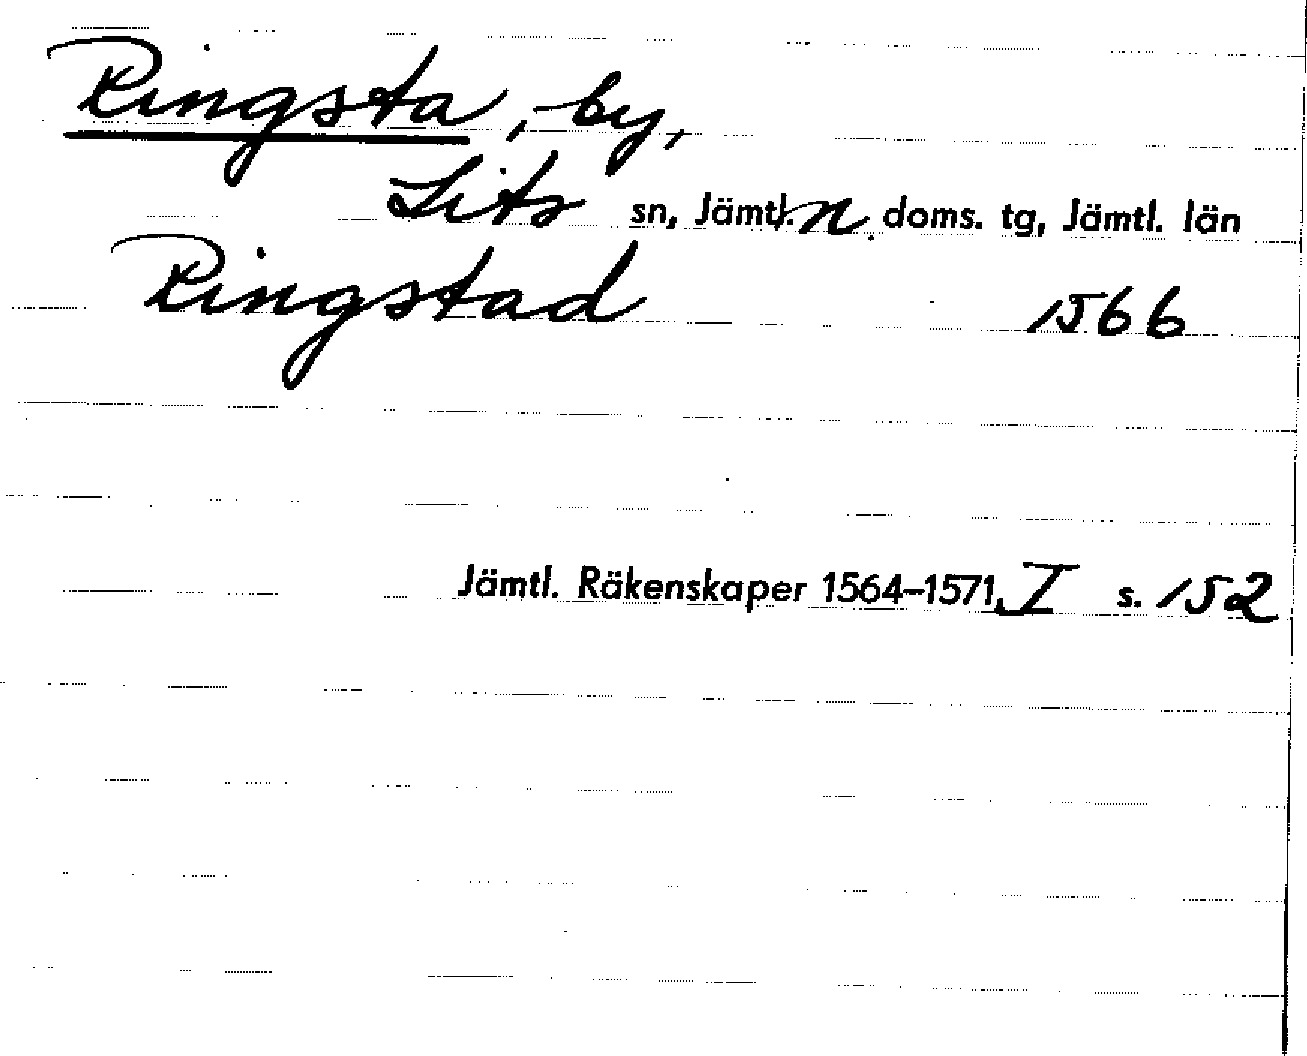 Ringsta, by,
Lits sn, Jämtl. n. doms. tg, Jämtl. län
Ringstad 1566
Jämtl. Räkenskaper 1564–1571, I s. 152